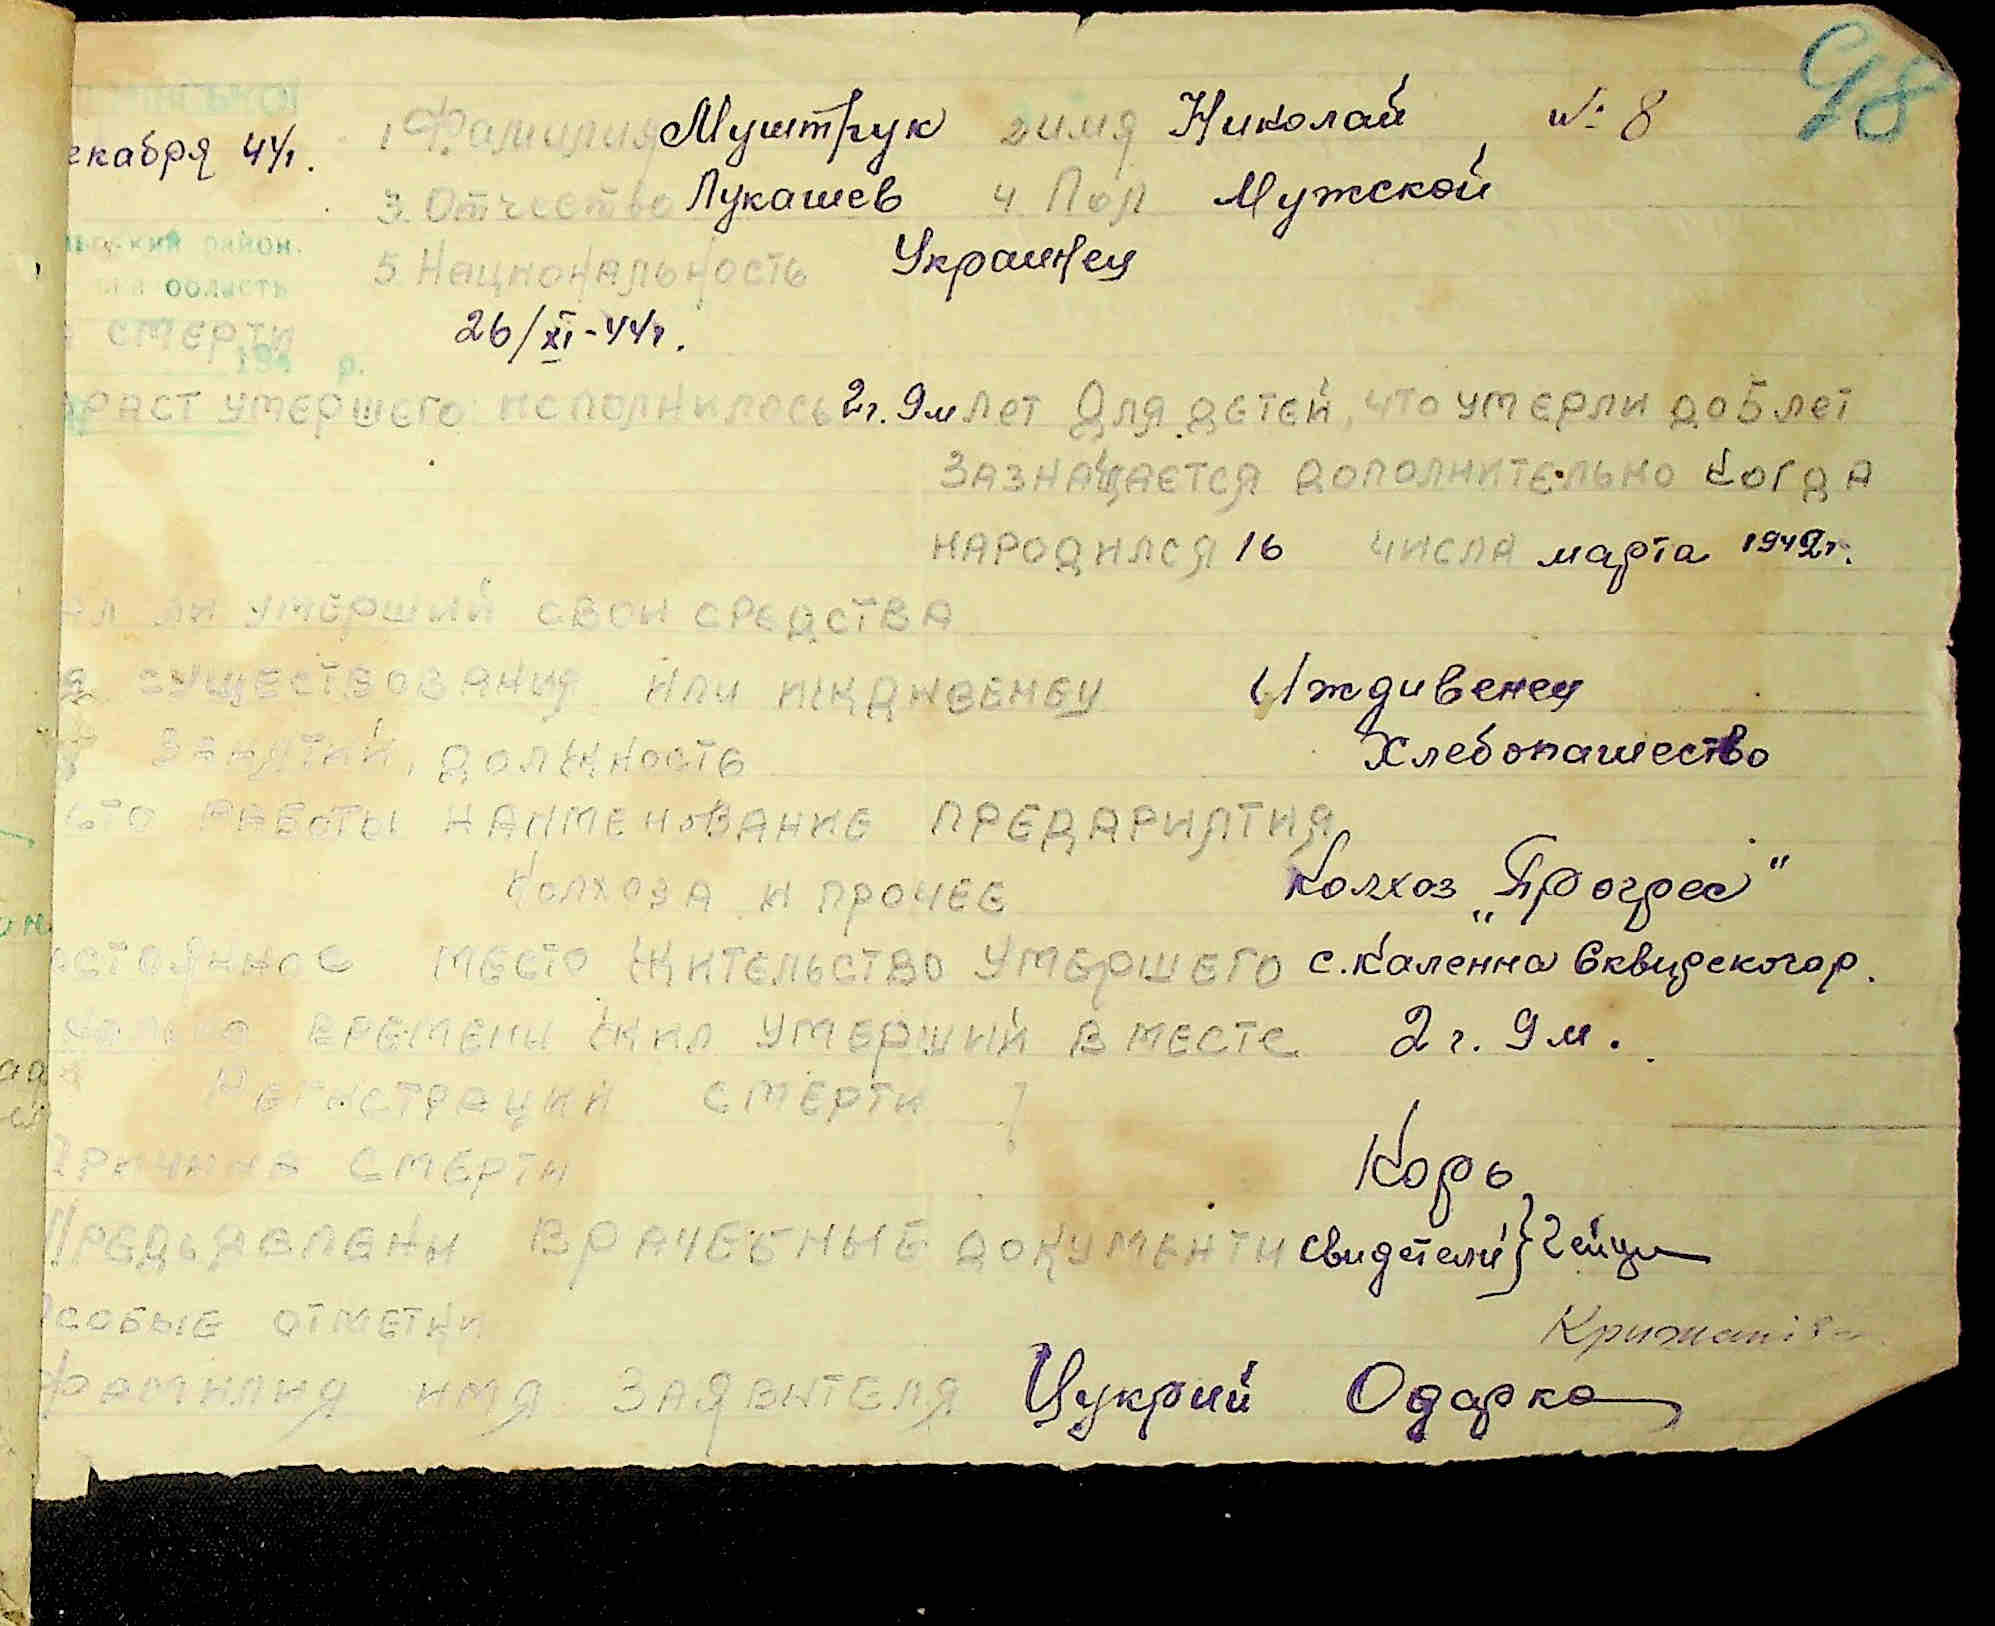 98
1 Фамилия Муштрук 2 имя Николай № 8
екабря 44г.
3. Отчество Лукашев 4 Пол Мужской
район.
5. Национальность Украинец
область
смерти 26/XI-44г.
194 р.
раст умершего исполнилось 2г. 9м лет Для детей, что умерли до 5 лет
зазнащается дополнительно когда
народился 16 числа марта 1942г.
ал ли умерший свои средства
я существования или иждивенец Иждивенец
занятий, должность Хлебопашество
сто работы наименование предариятия
колхоза и прочее Колхоз „Прогрес"
остоянное место жительство умершего с. Каленна Сквирского р.
колько времени жил умерший в месте 2 г. 9 м.
Регистрации смерти
Причина смерти Корь
Предъявлены врачебные документи свидетели }
Особые отметки
Фамилия имя заявителя Цукрий Одарка